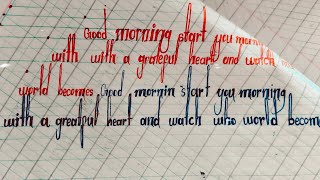 Good morning start you mornin
with with a grateful heart and watch
world becomes Good mornin start you morning
with a greatful heart and watch who world becom